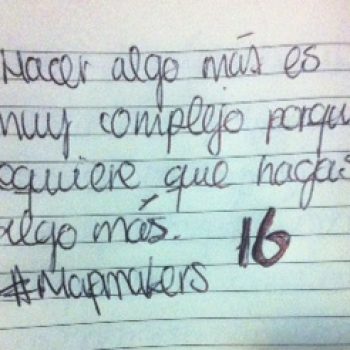 Hacer algo más es
muy complejo porqu
equiere que hagas
algo más.
16
#Mapmakers